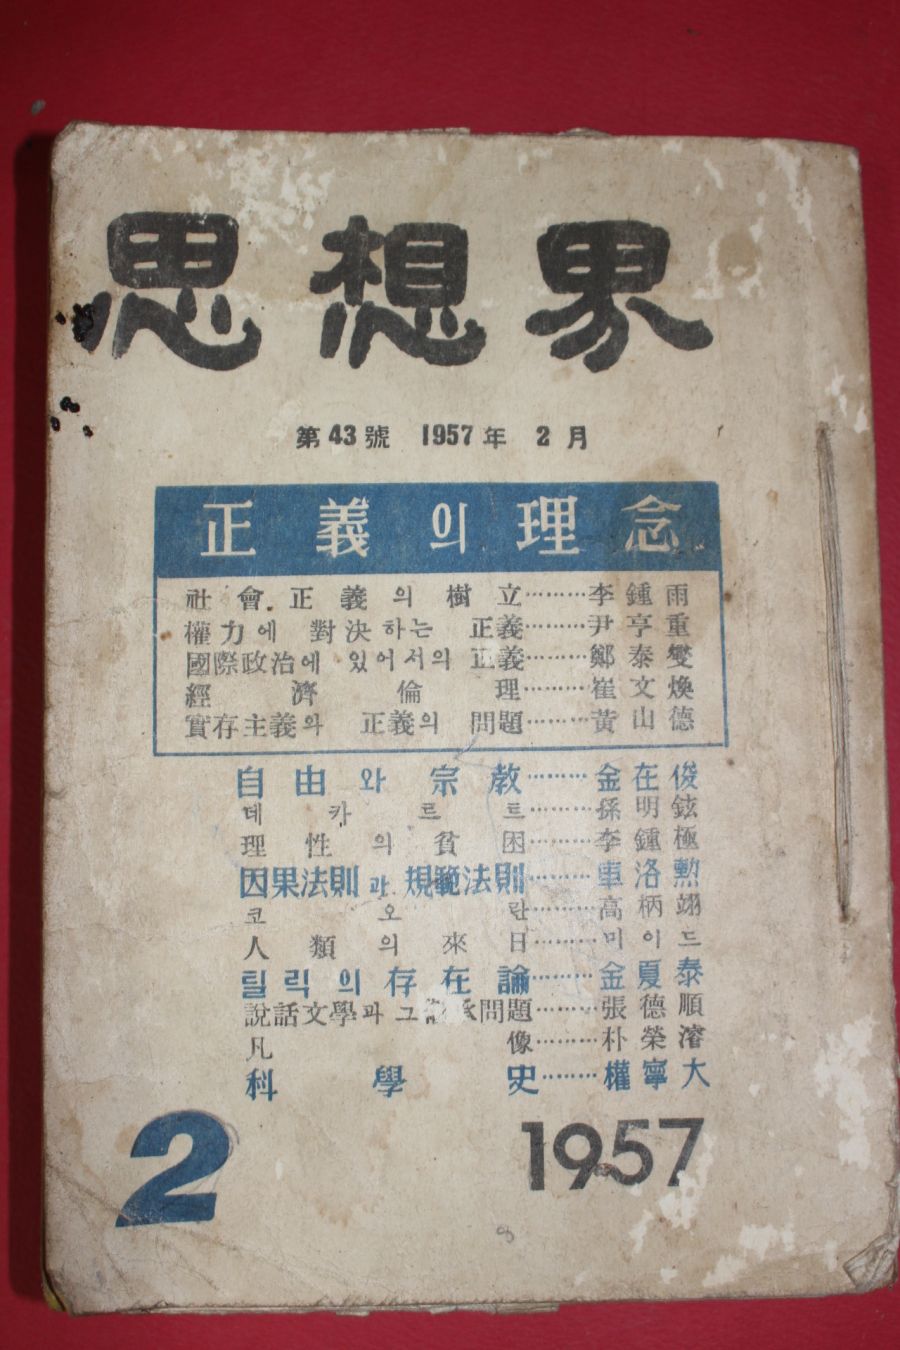 思想界
第43號 1957年 2月
正義의理念
社會正義의樹立………李鍾雨
權力에 對決하는 正義………尹亨重
國際政治에 있어서의 正義………鄭泰燮
經濟倫理………崔文煥
實存主義와 正義의 問題………黃山德
自由와宗敎………金在俊
데카르트………孫明鉉
理性의貧困………李鍾極
因果法則과 規範法則………車洛勳
코오란………高柄翊
人類의來日………미이드
틸릭의存在論………金夏泰
說話文學과 그 承問題………張德順
凡像………朴榮濬
科學史………權寧大
2
1957